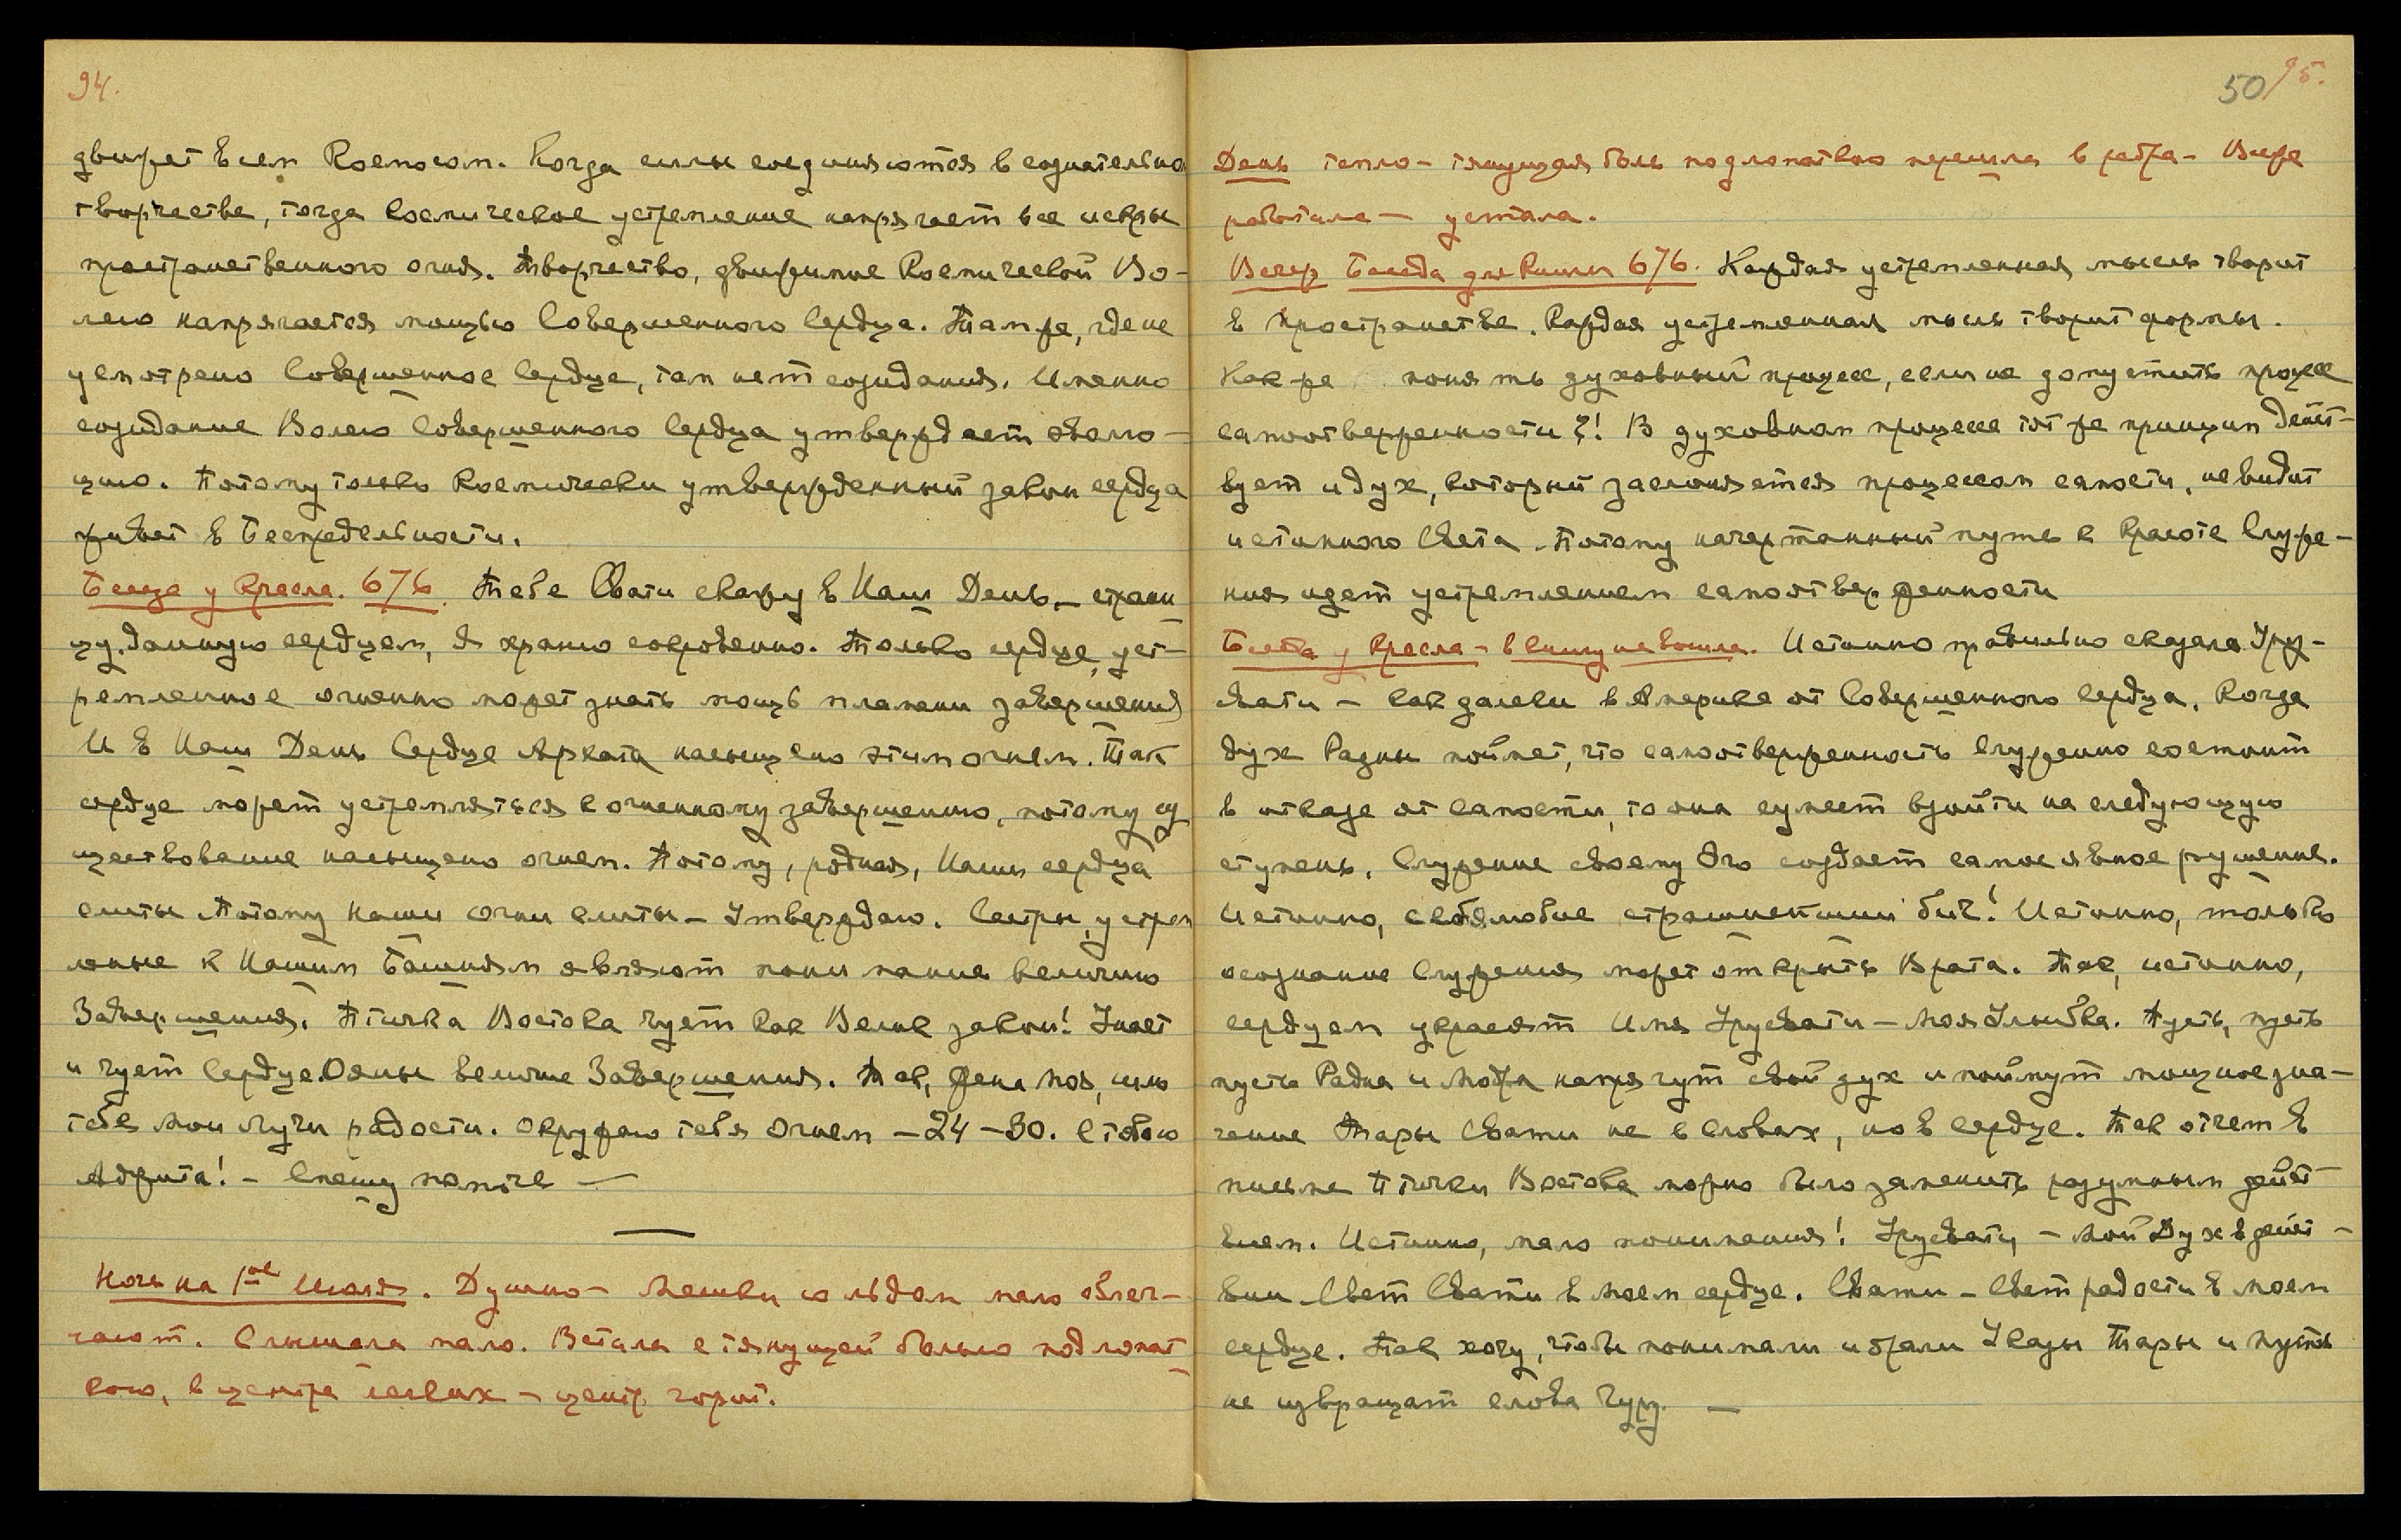 94.
движет всем Космосом. Когда силы соединяются в сознательно
творчестве, тогда космическое устремление напрягает все искры
пространственного огня. Творчество, движимое Космической Во-
лею напрягается мощью Совершенного Сердца. Там же, где не
усмотрено Совершенное Сердце, там нет созидания. Именно
созидание Волею Совершенного Сердца утверждает эволю-
цию. Потому только Космически утвержденный закон сердца
живет в Беспредельности.
Беседа у Кресла. 676. Тебе Свати скажу в Наш День – страни
цу, данную сердцем, Я храню сокровенно. Только сердце, уст-
ремленное огненно может знать мощь пламени завершения
И в Наш День Сердце Архата насыщено этим огнем. Так
сердце может устремляться к огненному завершению, потому су
ществование насыщено огнем. Потому, родная, Наши сердца
слиты Потому Наши Огни слиты – Утверждаю. Сестры, устрем
ленные к Нашим Башням являют понимание величию
Завершения. Птичка Востока чует как Велик закон! Знает
и чует Сердце Ояны величие Завершения. Так, Жена Моя, шлю
тебе Мои Лучи радости. Окружаю тебя Огнем – 24 – 30. С тобою
Аджита! – Спешу помочь —
Ночь на 1ое Июля. Душно – Мешки со льдом мало облег-
чают. Слышала мало. Встала с тянущей болью под лопат
кою, в центре легких – центр горит.
50 95.
День тепло – тянущая боль под лопаткою перешла в ребра – Виже
работала – устала.
Вечер Беседа для Книги 676. Каждая устремленная мысль творит
в пространстве. Каждая устремленная мысль творит формы.
Как же понять духовный процесс, если не допустить процесс
самоотверженности?! В духовном процессе тот же принцип дейст-
вует и дух, который заслоняется процессом самости, не видит
истинного Света. Потому начертанный путь к Красоте Служе-
ния идет устремлением самоотверженности
Беседа у Кресла – в книгу не вошла. Истинно правильно сказала Уру-
свати – как далеки в Америке от Совершенного Сердца. Когда
дух Радны поймет, что самоотверженность Служению состоит
в отказе от самости, то она сумеет взойти на следующую
ступень. Служение своему Эго создает самое явное рушение.
Истинно, себялюбие страшнейший бич! Истинно, только
осознание Служения может открыть Врата. Так, истинно,
сердцем украсят Имя Урусвати – Моя Улыбка. Пусть, пусть
пусть Радна и Модра напрягут свой дух и поймут мощное зна-
чение Тары Свати не в Словах, но в Сердце. Так отчет в
письме Птички Востока можно было заменить разумным дейст
вием. Истинно, мало понимания! Урусвати – Мой Дух в дейст-
вии. Свет Свати в Моем сердце. Свати – Свет радости в Моем
сердце. Так хочу, чтобы понимали и брали Указы Тары и пусть
не извращают слова Гуру. —